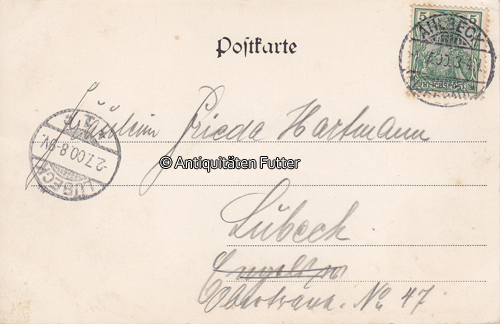 Postkarte
5 5
AHLBECK
REICHSPOST
Fräulein Frieda Hartmann
LÜBECK
2.7.00.8-9V.
© Antiquitäten Futter
Lübeck
No 47